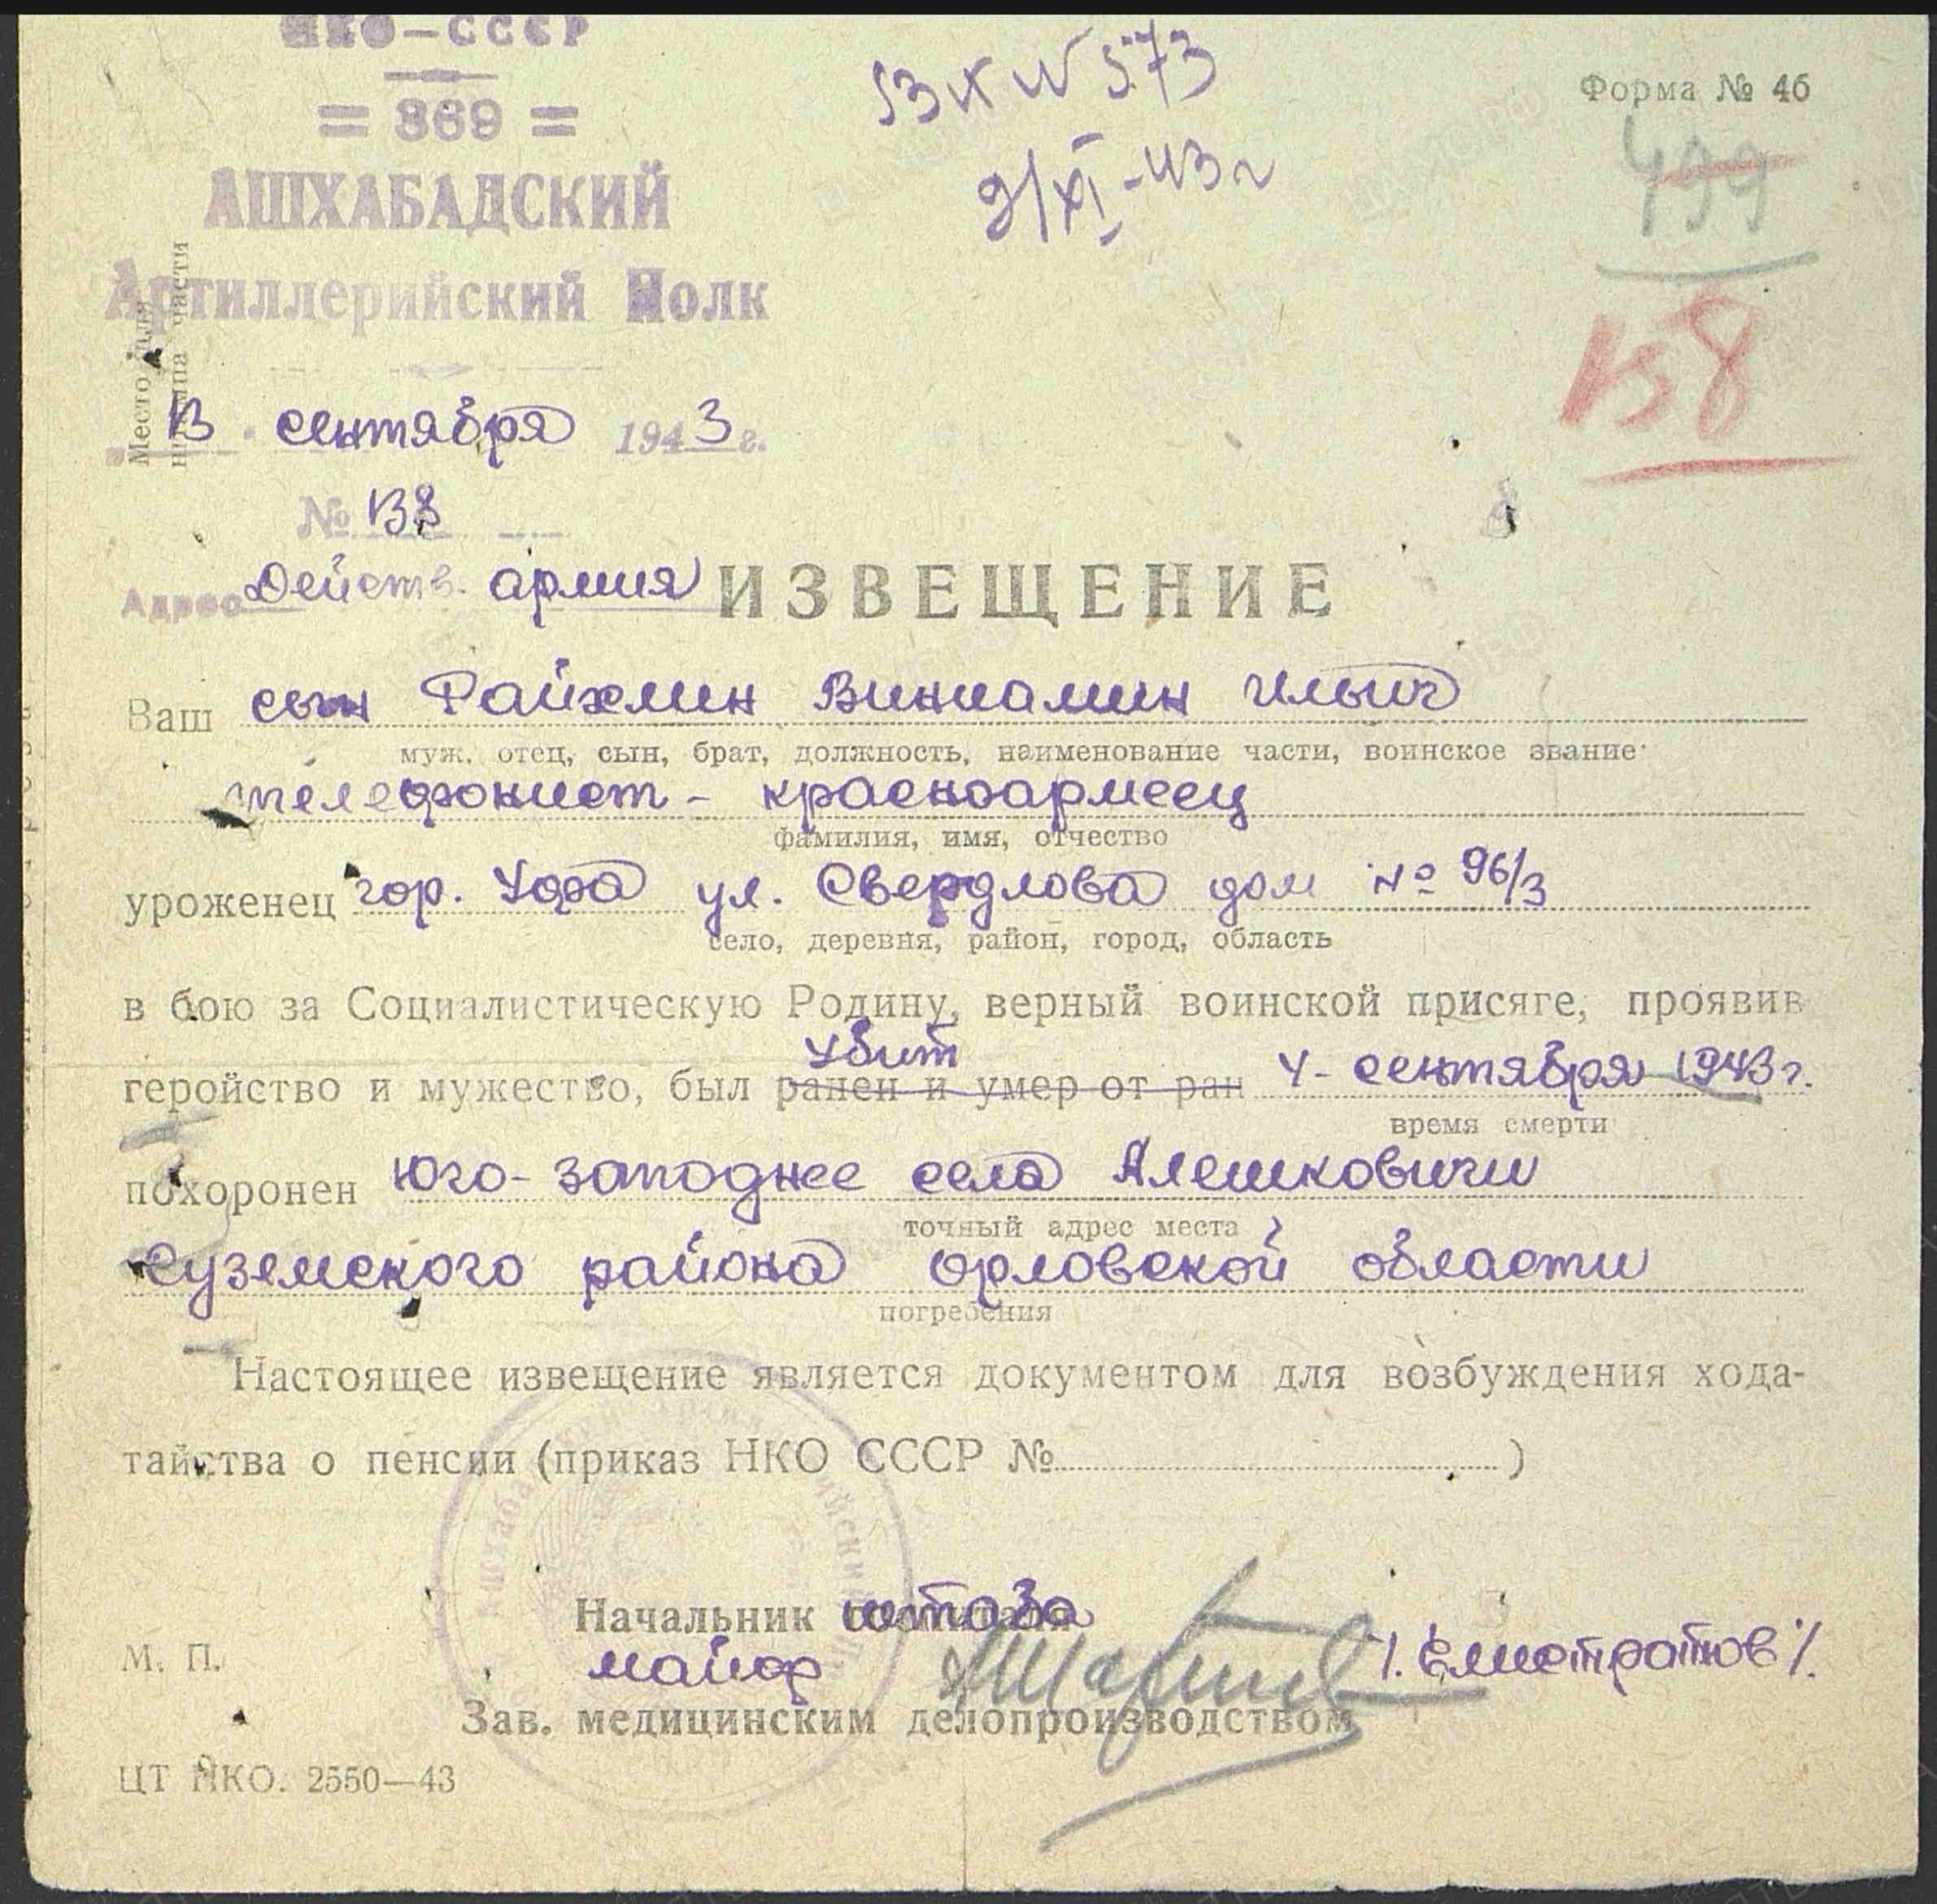 НКО-СССР
= 369 =
АШХАБАДСКИЙ
Артиллерийский Полк
Место для
штампа части
13 сентября 1943 г.
№ 138
Адрес Действ. армия
вх N 573
9/XI-43 г
Форма № 4б
499
138
ИЗВЕЩЕНИЕ
Ваш сын Файхмин Виниамин Ильич
муж, отец, сын, брат, должность, наименование части, воинское звание
телефонист - красноармеец
фамилия, имя, отчество
уроженец гор. Уфа ул. Свердлова дом № 96/3
село, деревня, район, город, область
в бою за Социалистическую Родину, верный воинской присяге, проявив
убит
геройство и мужество, был ранен и умер от ран 4- сентября 1943 г.
время смерти
похоронен юго-западнее села Алешковичи
точный адрес места
Суземского района Орловской области
погребения
Настоящее извещение является документом для возбуждения хода-
тайства о пенсии (приказ НКО СССР № )
Начальник штаба
М. П. майор /. Елистратов /.
Зав. медицинским делопроизводством
ЦТ НКО. 2550—43